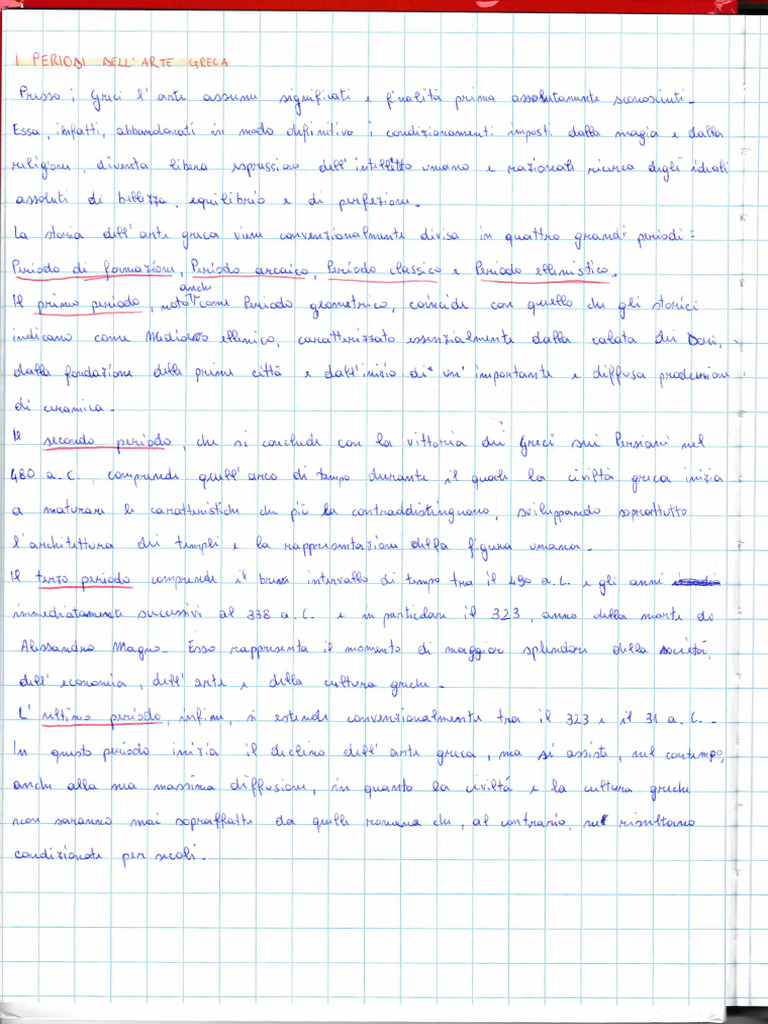 I PERIODI DELL'ARTE GRECA
Presso i Greci l'arte assume significati e finalità prima assolutamente sconosciuti.
Essa, infatti, abbandonati in modo definitivo i condizionamenti imposti dalla magia e dalla
religione, diventa libera espressione dell'intelletto umano e razionali ricerca degli ideali
assoluti di bellezza, equilibrio e di perfezione.
La storia dell'arte greca viene convenzionalmente divisa in quattro grandi periodi:
Periodo di formazione, Periodo arcaico, Periodo classico e Periodo ellenistico.
Il primo periodo, noto anche come Periodo geometrico, coincide con quello che gli storici
indicano come Medioevo ellenico, caratterizzato essenzialmente dalla calata dei Dori,
dalla fondazione delle prime città e dall'inizio di un'importante e diffusa produzione
di ceramica.
Il secondo periodo, che si conclude con la vittoria dei Greci sui Persiani nel
480 a.C., comprende quell'arco di tempo durante il quale la civiltà greca inizia
a maturare le caratteristiche che più la contraddistinguono, sviluppando soprattutto
l'architettura dei templi e la rappresentazione della figura umana.
Il terzo periodo comprende il breve intervallo di tempo tra il 490 a.C. e gli anni
immediatamente successivi al 338 a.C. e in particolare il 323, anno della morte di
Alessandro Magno. Esso rappresenta il momento di maggior splendore della società,
dell'economia, dell'arte e della cultura greche.
L'ultimo periodo, infine, si estende convenzionalmente tra il 323 e il 31 a.C..
In questo periodo inizia il declino dell'arte greca, ma si assiste, nel contempo,
anche alla sua massima diffusione, in quanto la civiltà e la cultura greche
non saranno mai sopraffatte da quella romana che, al contrario, ne risultano
condizionate per secoli.